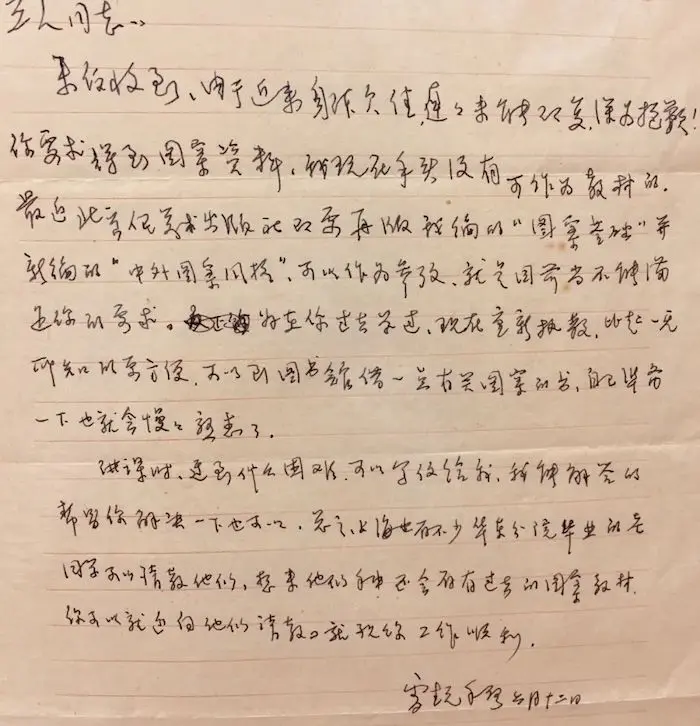 同志:
来信收到、由于近来身体欠佳,迟迟未能即复,深为抱歉!
你要求得到图案资料,我现在手头没有可作为教材的.
最近北京人民美术出版社即要再版我编的"图案基础"并
新编的"中外图案风格",可以作为参考、就是目前尚不能满
足你的要求。好在你过去学过,现在重新执教,比起一无
所知的要方便,可以到图书馆借一些有关图案的书,自己准备
一下也就会慢慢熟悉了.
讲课时,遇到什么困难,可以写信给我,我能解答的
帮助你解决一下也可以,总之,上海也有不少华东分院毕业的老
同学可以请教他们,想来他们手中还会存有过去的图案教材.
你可以就近向他们请教。就祝你工作顺利.
雷圭元 六月十二日